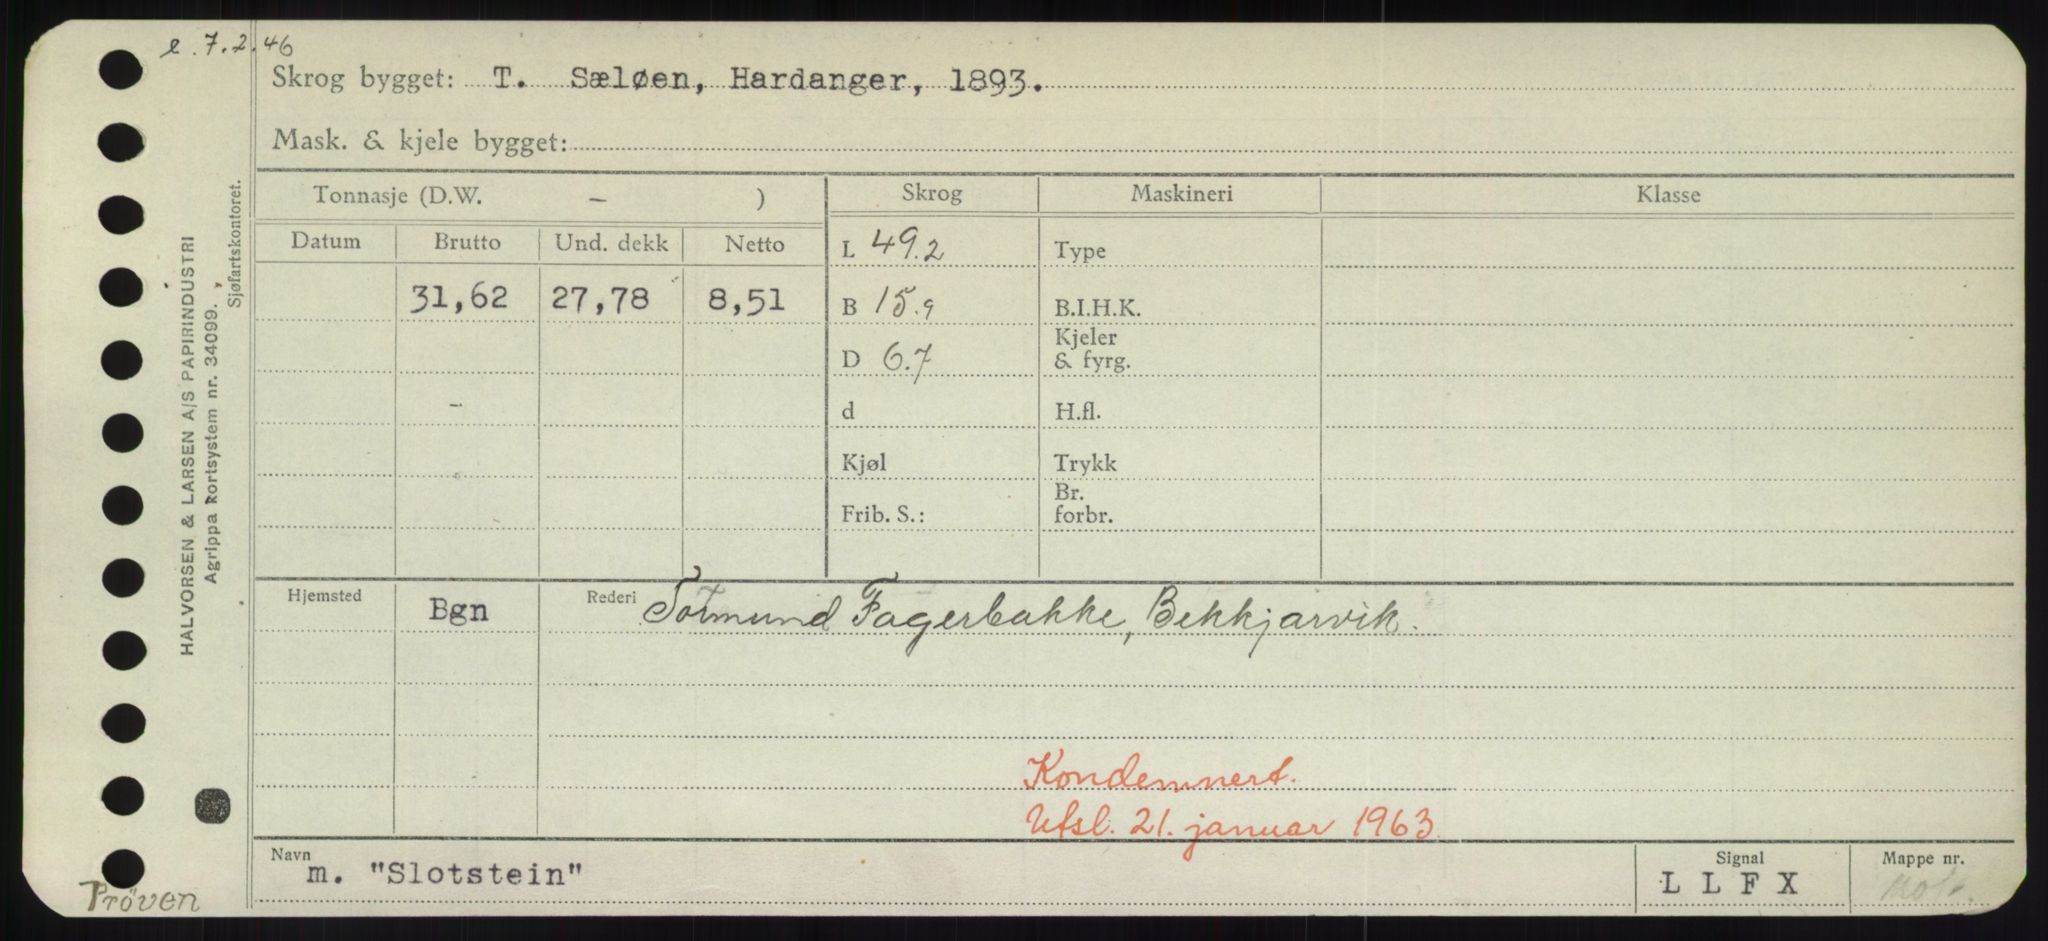 e. 7.2.46
Skrog bygget: T. Sæløen, Hardanger, 1893.
Mask. & kjele bygget:
Tonnasje (D.W. – ) Skrog Maskineri Klasse
Datum Brutto Und. dekk Netto L 49.2 Type
31,62 27,78 8,51 B 15.9 B.I.H.K.
D 6.7 Kjeler & fyrg.
d H.fl.
Kjøl Trykk
Frib. S.: Br. forbr.
Hjemsted Bgn Rederi Tormund Fagerbakke, Bekkjarvik.
Kondemnert.
Utsl. 21. januar 1963
Navn m. "Slotstein" Signal L L F X Mappe nr.
Pröven
HALVORSEN & LARSEN A/S PAPIRINDUSTRI
Agrippa kortsystem nr. 34099.
Sjøfartskontoret.